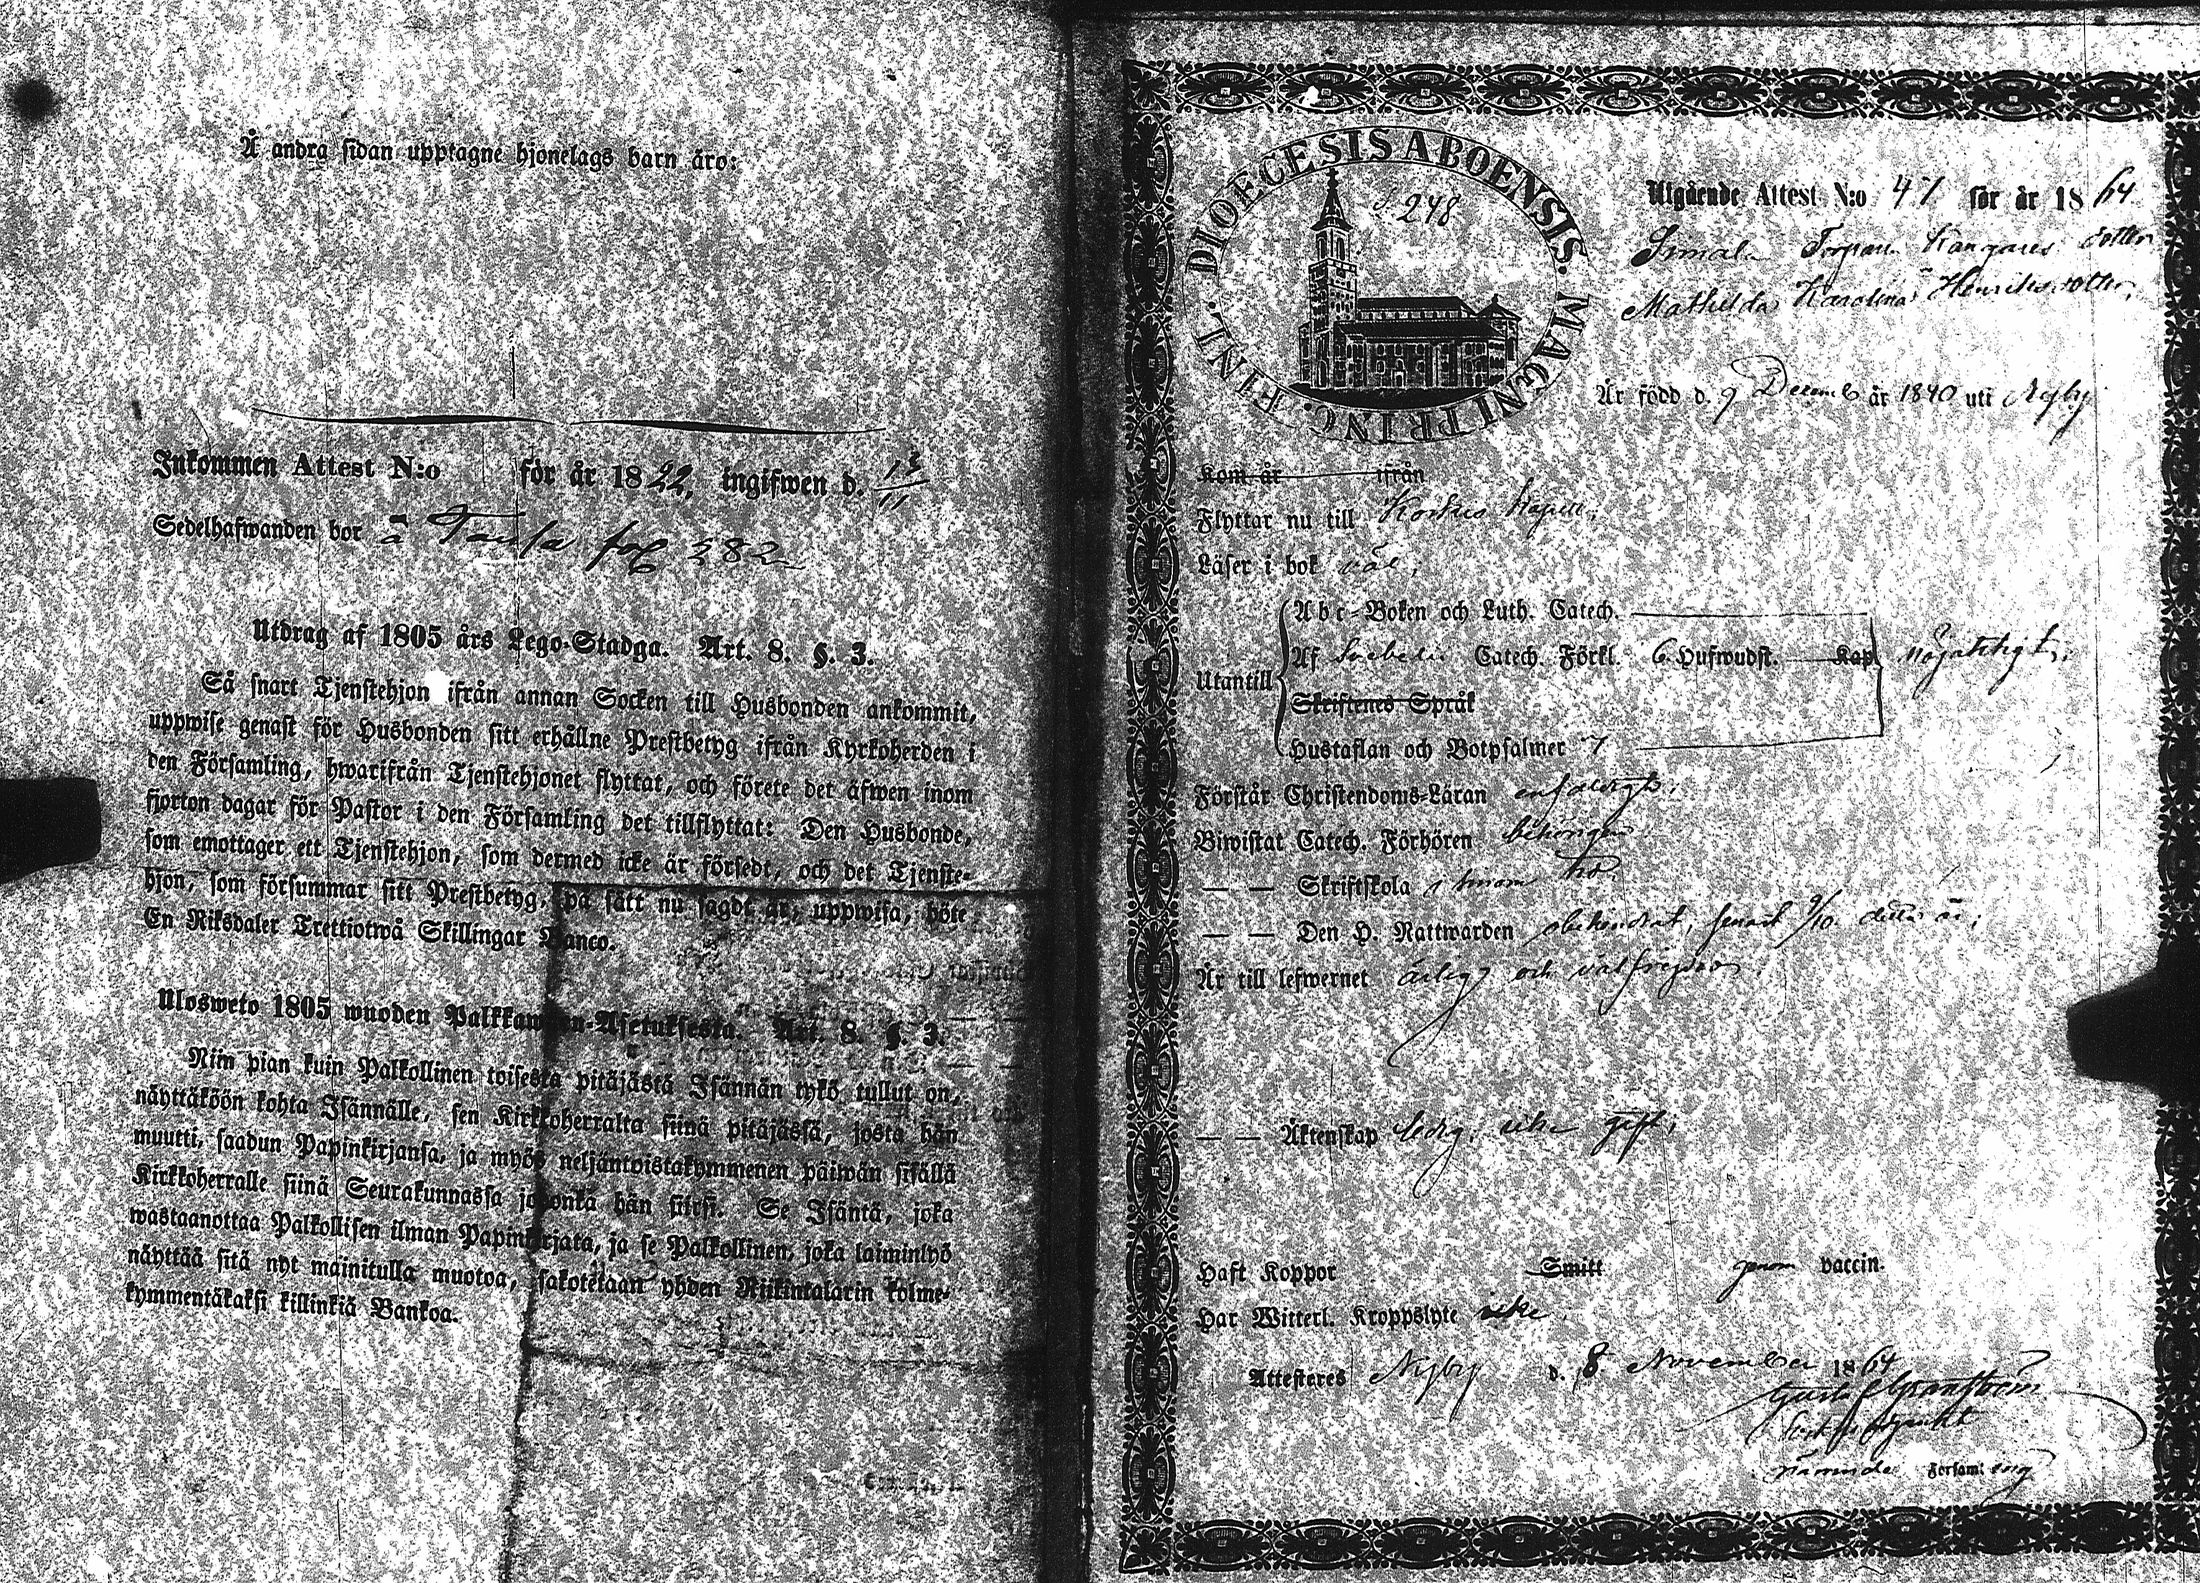 Å andra sidan upptagne hjonelags barn äro:
Inkommen Attest N:o för år 1822, ingifwen d. 13/11
Sedelhafwanden bor å Taula fol 282
Utdrag af 1805 års Lego-Stadga. Art. 8. §. 3.
Så snart Tjenstehjon ifrån annan Socken till Husbonden ankommit,
uppwise genast för Husbonden sitt erhållne Prestbetyg ifrån Kyrkoherden i
den Församling, hwarifrån Tjenstehjonet flyttat, och förete det äfwen inom
fjorton dagar för Pastor i den Församling det tillflyttat: Den Husbonde,
som emottager ett Tjenstehjon, som dermed icke är försedt, och det Tjenste-
hjon, som försummar sitt Prestbetyg, på sätt nu sagdt är, uppwisa, böte
En Riksdaler Trettiotwå Skillingar Banco.
Ulosweto 1805 wuoden Palkkawäen-Asetuksesta. Art. 8. §. 3.
Niin pian kuin Palkollinen toisesta pitäjästä Isännän tykö tullut on,
näyttäköön kohta Isännälle, sen Kirkkoherralta siinä pitäjässä, josta hän
muutti, saadun Papinkirjansa, ja myös neljäntoistakymmenen päiwän sisällä
Kirkkoherralle siinä Seurakunnassa johonka hän siirsi. Se Isäntä, joka
wastaanottaa Palkollisen ilman Papinkirjata, ja se Palkollinen, joka laiminlyö
näyttää sitä nyt mainitulla muotoa, sakotetaan yhden Riikintalarin kolme-
kymmentäkaksi killinkiä Bankoa.
DIOECESIS ABOENSIS. MAGNI PRINC. FINL.
248
Utgående Attest N:o 47 för år 1864
Kangares dotter
Mathilda Karolina Henriksdotter,
Är född d. 9 Decemb år 1840 uti Nyby
Kom år ifrån
Flyttar nu till Korkis Kapell,
Läser i bok väl,
Abc-Boken och Luth. Catech.
Utantill Af Svebelii Catech. Förkl. 6 Hufwudst. Kap nöjaktigt,
Skriftenes Språk
Hustaflan och Botpsalmer 7
Förstår Christendoms-Läran enfaldigt,
Biwistat Catech. Förhören behörigen
— — Skriftskola
— — Den H. Nattwarden obehindrat, senast 9/10 detta år,
Är till lefwernet ärlig och välfrejdad
— — Äktenskap ledig, icke gift,
Haft Koppor Smitt genom vaccin.
Har Witterl. Kroppslyte icke
Attesteres Nyby d. 8 November 1864
Gustaf Granström
Församling